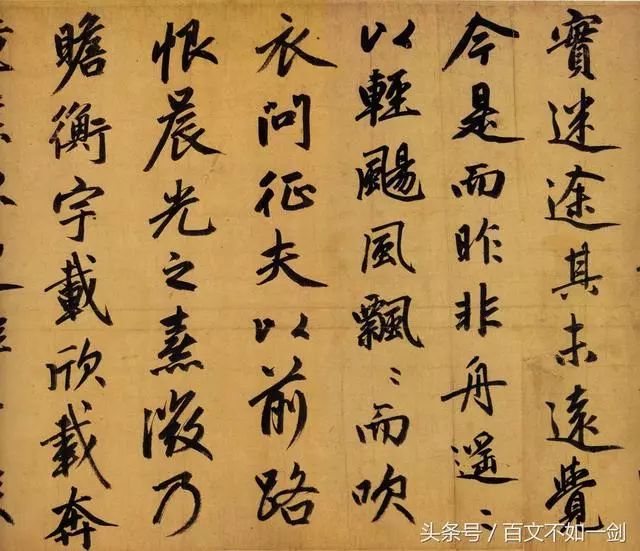 寶迷途其未遠覺
今是而昨非舟遥〻
以輕颺風飄〻而吹
衣問征夫以前路
恨晨光之熹微乃
瞻衡宇載欣載奔
头条号／百文不如一剑